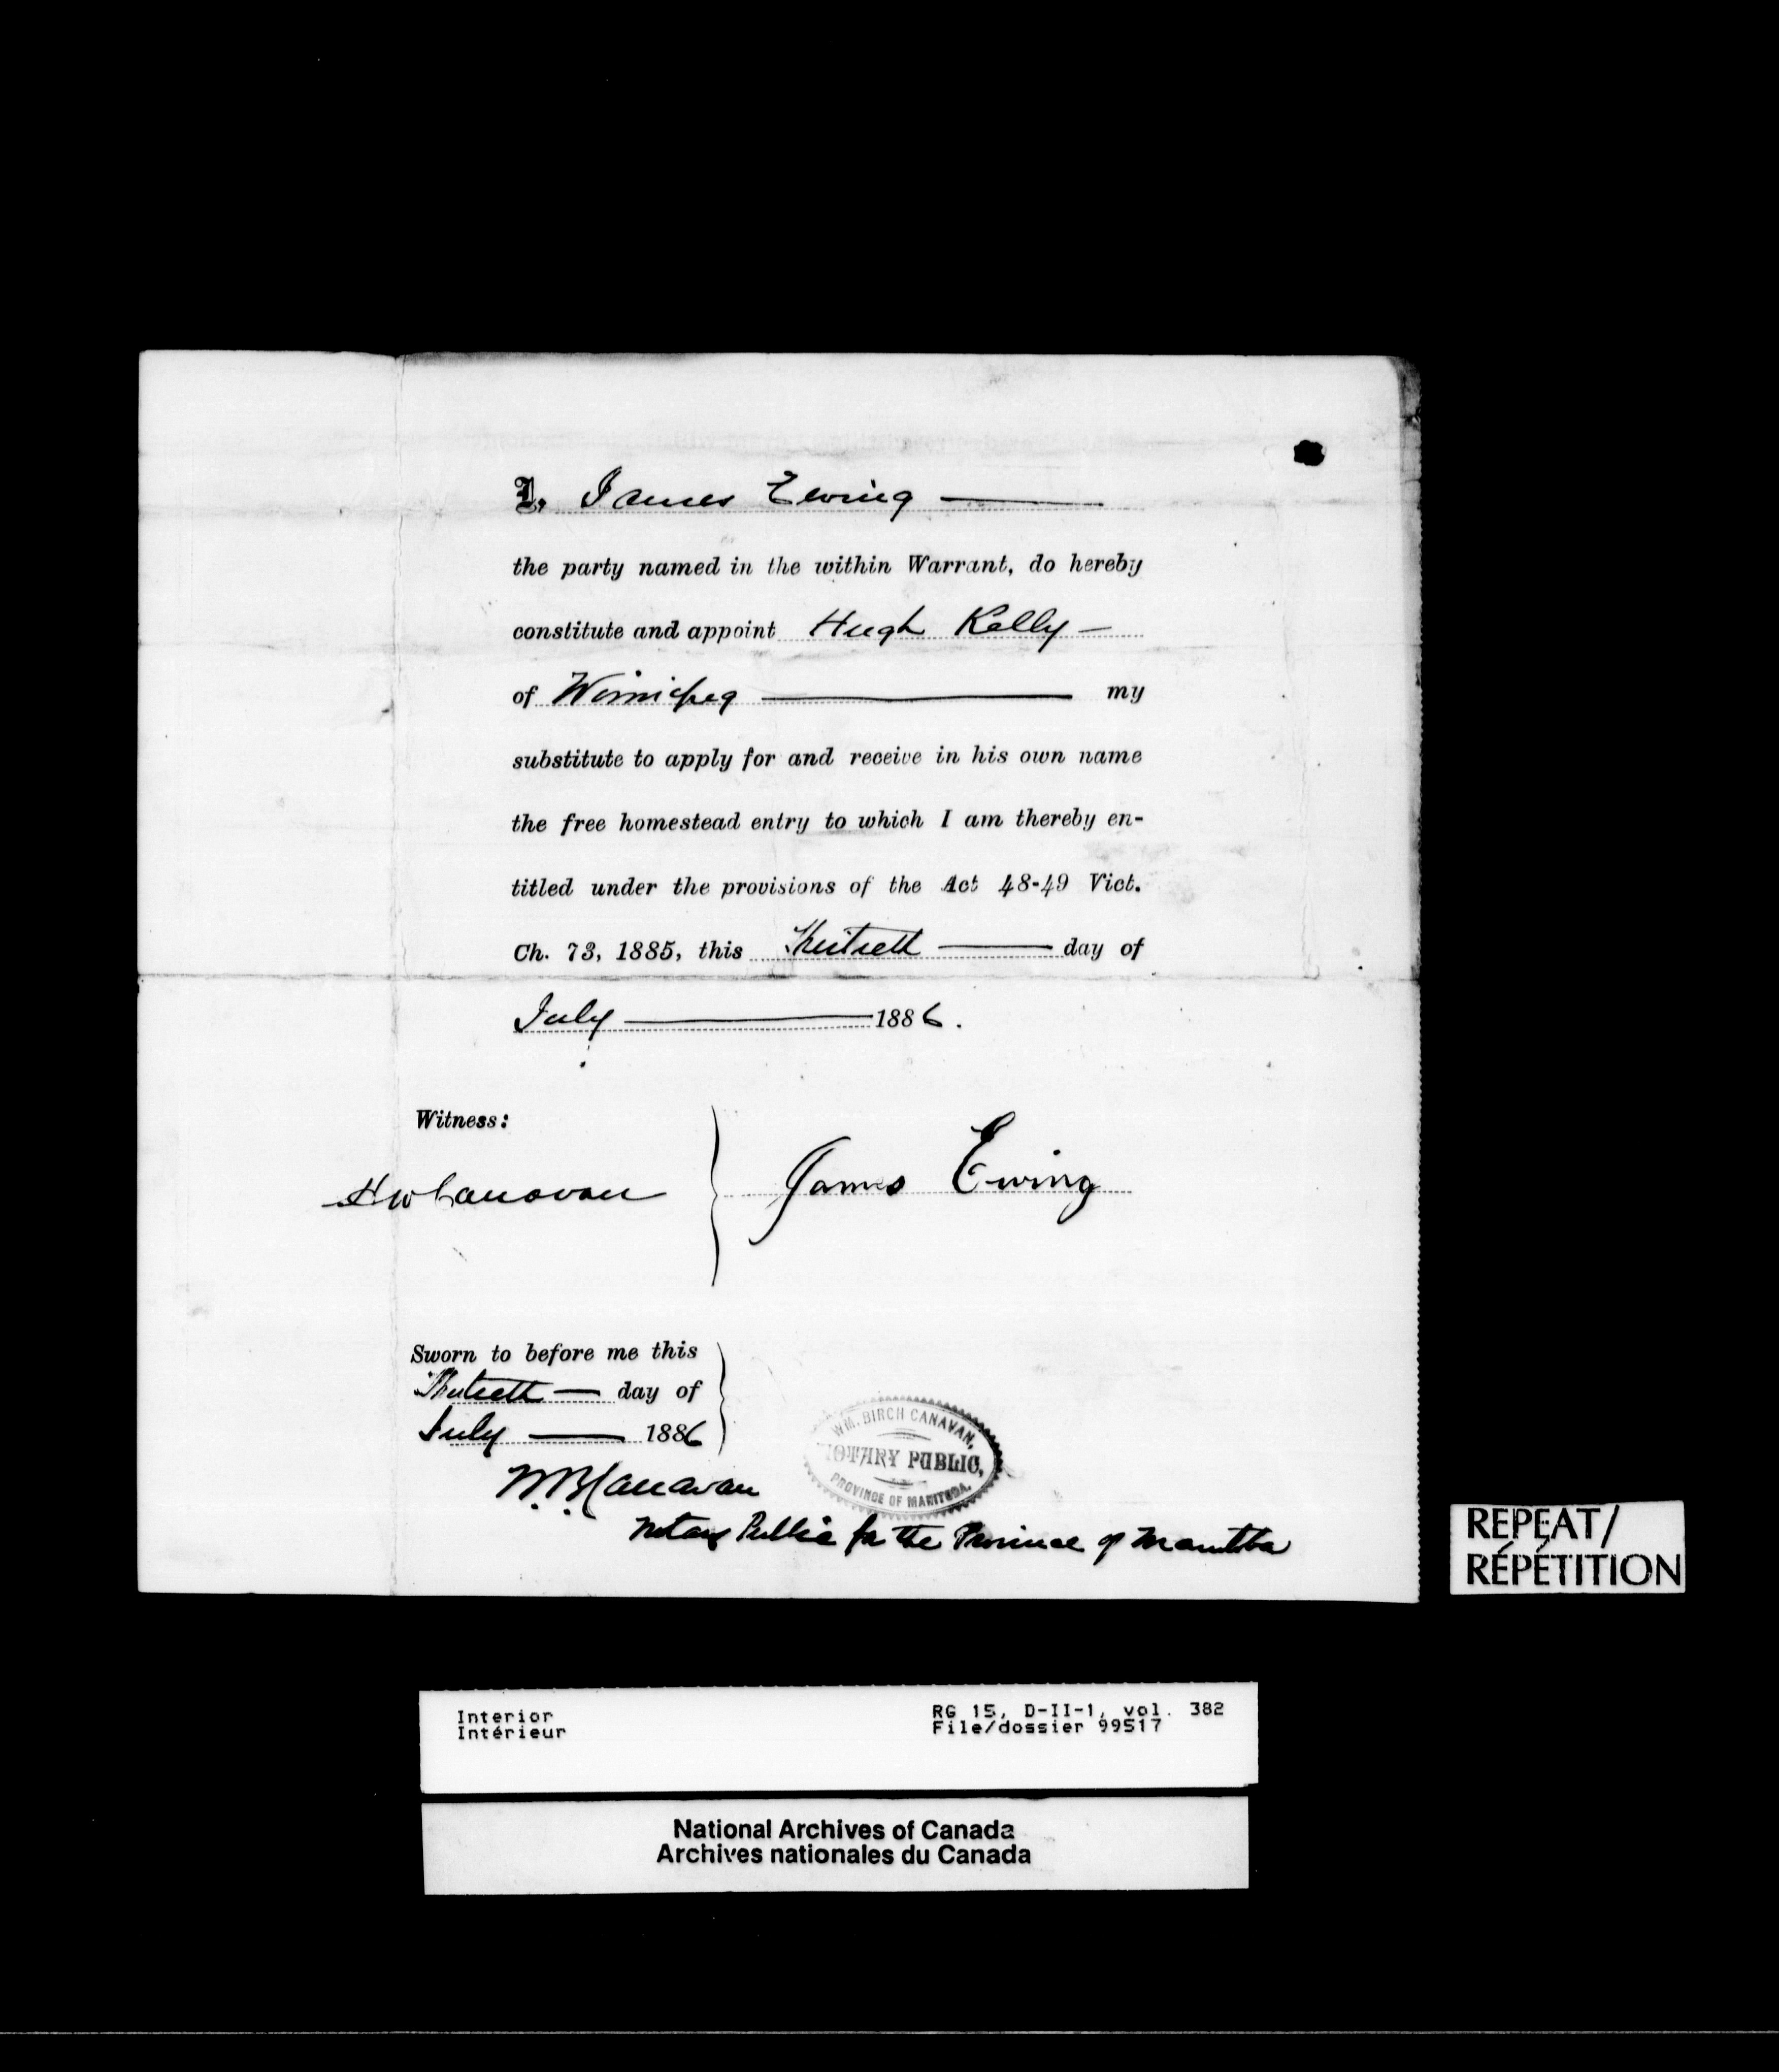 I, James Ewing
the party named in the within Warrant, do hereby
constitute and appoint Hugh Kelly
of Winnipeg my
substitute to apply for and receive in his own name
the free homestead entry to which I am thereby en-
titled under the provisions of the Act 48-49 Vict.
Ch. 73, 1885, this Thirtieth day of
July 1886.
Witness:
H W Canavan
James Ewing
Sworn to before me this
Thirtieth day of
July 1886
W. B. Canavan
WM. BIRCH CANAVAN,
NOTARY PUBLIC,
PROVINCE OF MANITOBA.
Notary Public for the Province of Manitoba
REPEAT/
RÉPÉTITION
Interior
Intérieur
RG 15, D-II-1, vol. 382
File/dossier 99517
National Archives of Canada
Archives nationales du Canada